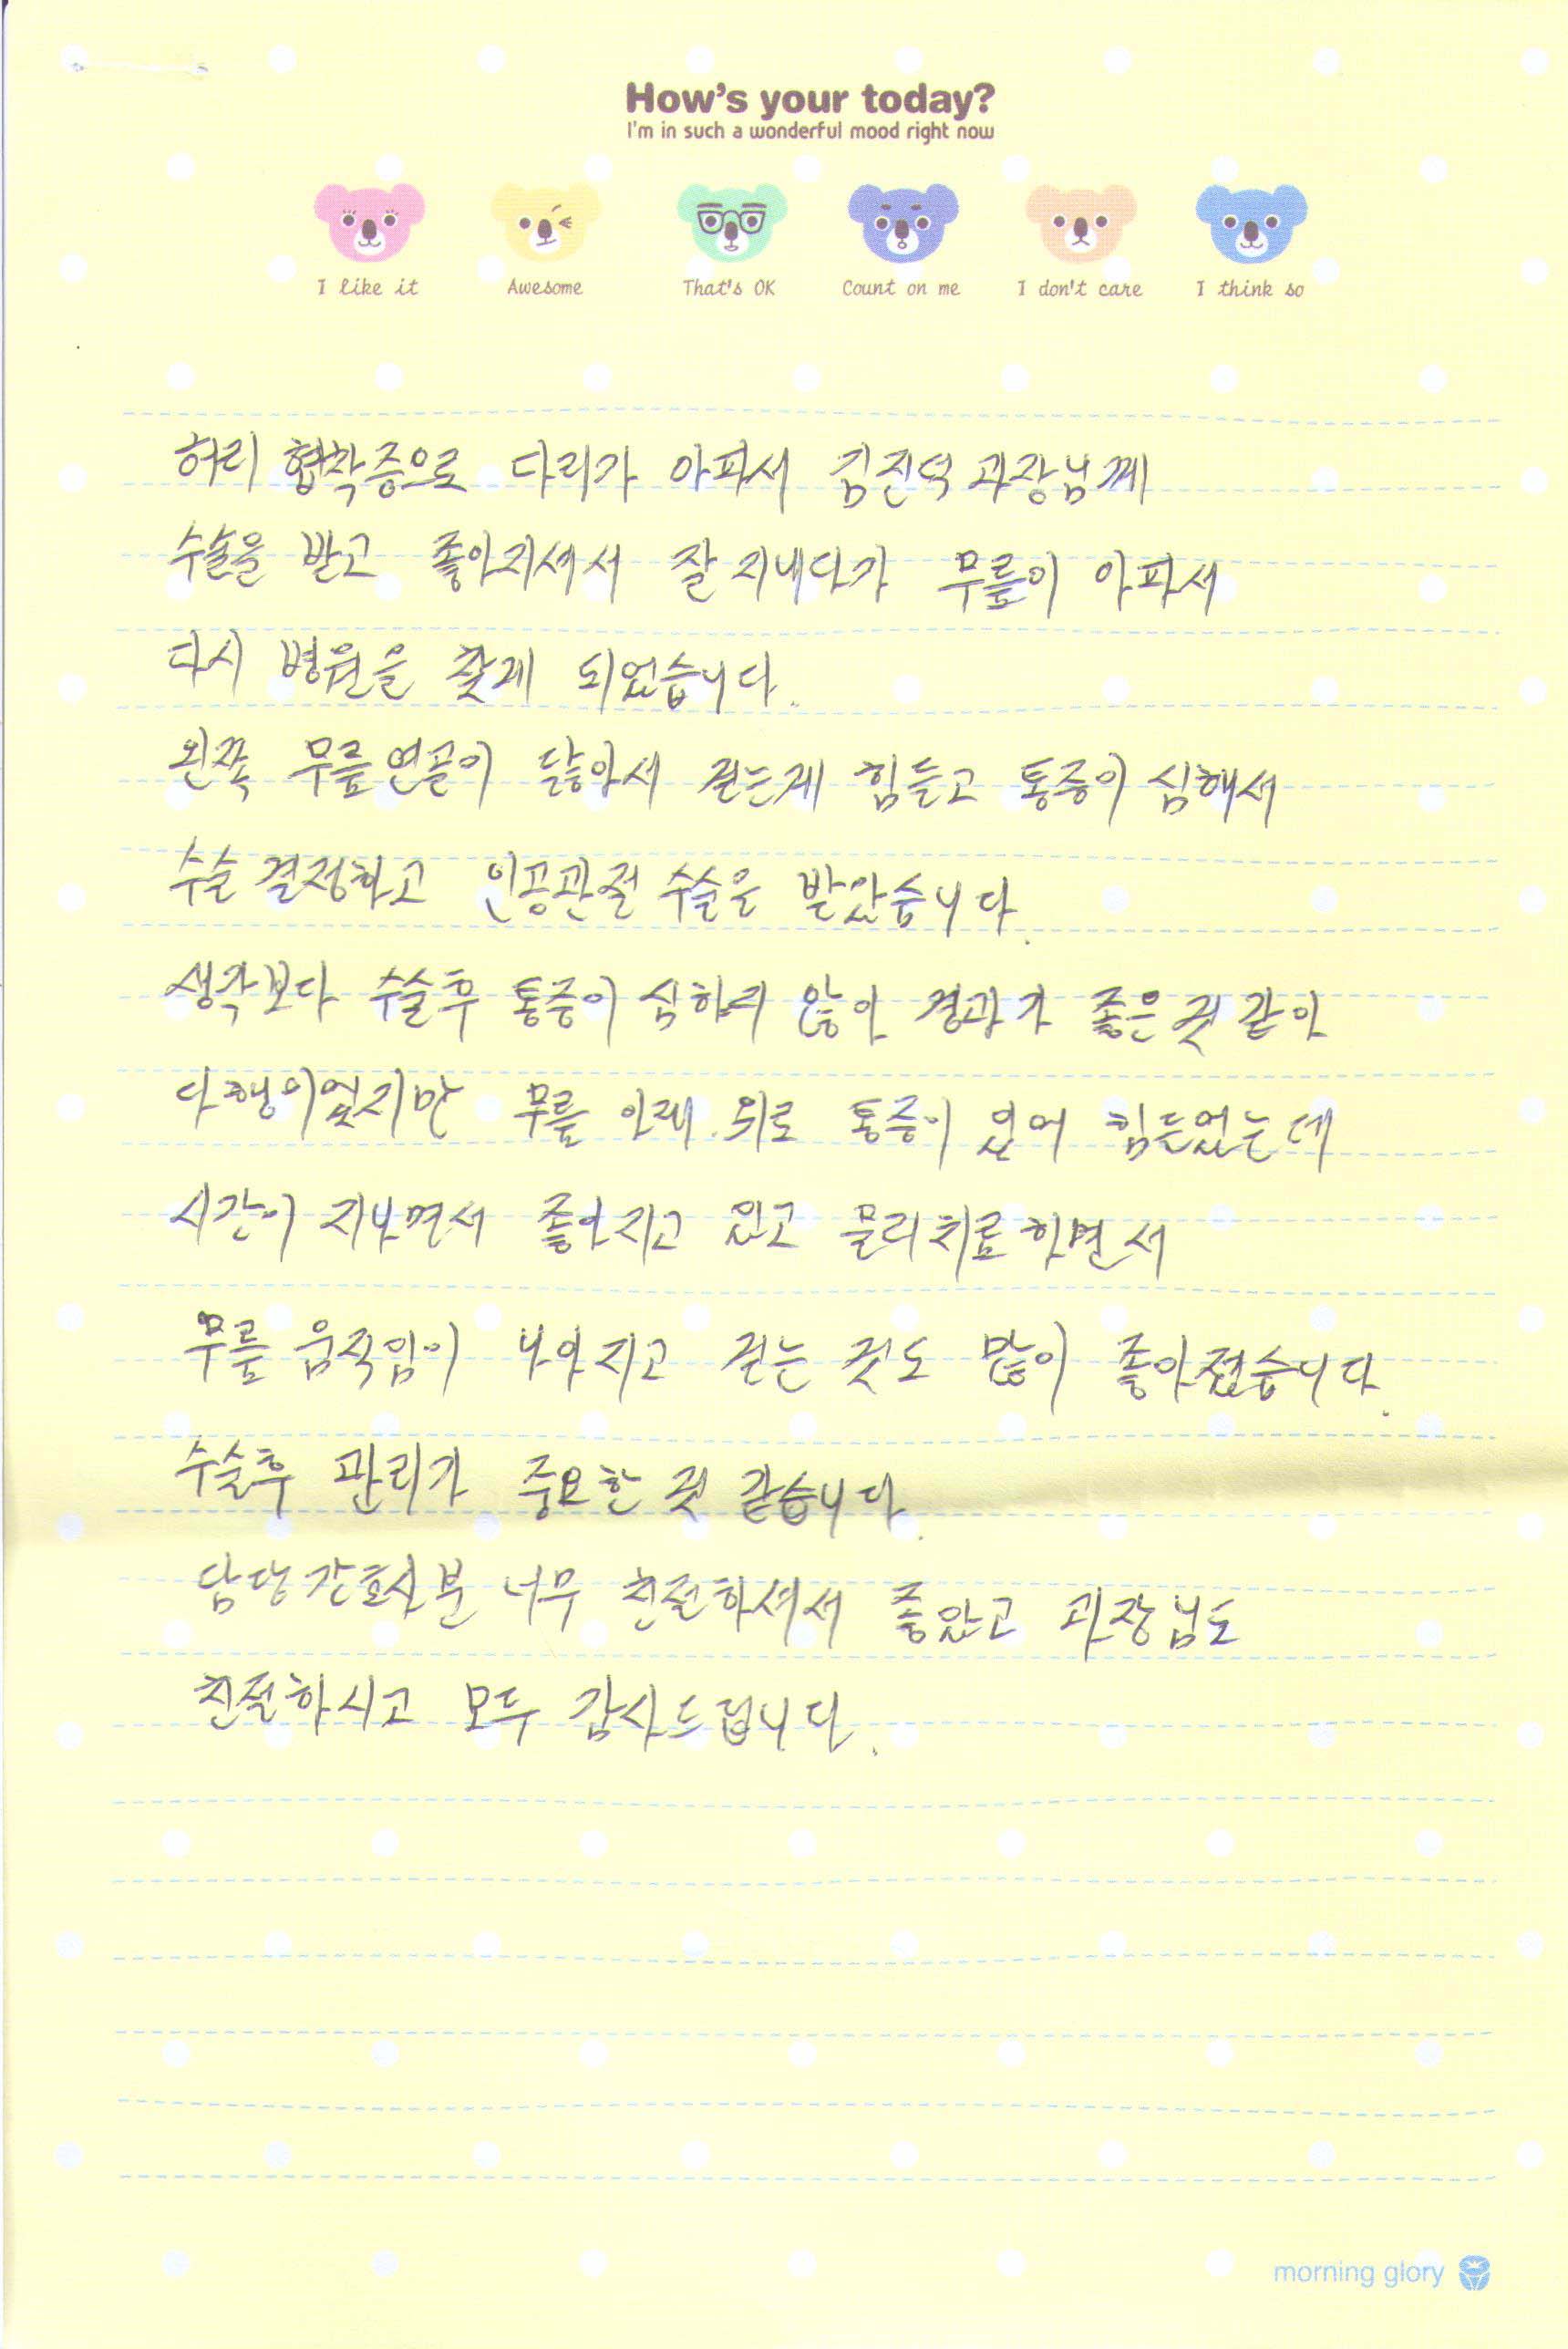 How's your today?
I'm in such a wonderful mood right now
I like it Awesome That's OK Count on me I don't care I think so
허리 협착증으로 다리가 아파서 김진덕 과장님께
수술을 받고 좋아지셔서 잘 지내다가 무릎이 아파서
다시 병원을 찾게 되었습니다.
왼쪽 무릎연골이 닳아서 걷는게 힘들고 통증이 심해서
수술 결정하고 인공관절 수술을 받았습니다.
생각보다 수술후 통증이 심하지 않아 경과가 좋은것 같아
다행이었지만 무릎 아래.위로 통증이 있어 힘들었는데
시간이 지나면서 좋아지고 있고 물리치료하면서
무릎 움직임이 나아지고 걷는 것도 많이 좋아졌습니다.
수술후 관리가 중요한 것 같습니다.
담당간호사분 너무 친절하셔서 좋았고 과장님도
친절하시고 모두 감사드립니다.
morning glory